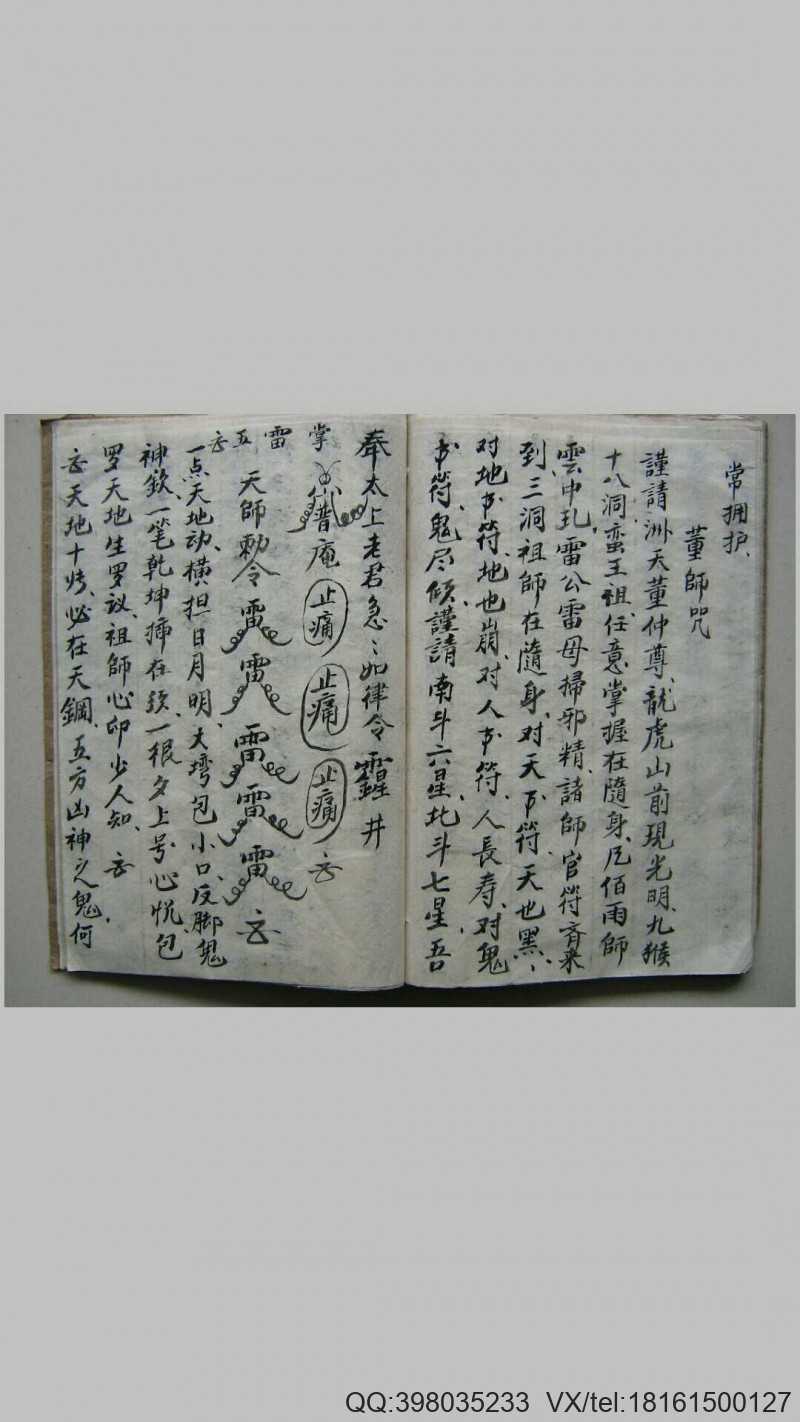 常拥护、
董師咒
謹請洲天董仲尊、龍虎山前現光明、九猴
十八洞、蛮王祖、任意掌握在隨身、凡佰雨師
雲中礼、雷公雷母掃邪精、諸師官符齊來
到、三洞祖師在隨身、对天書符、天也黑、
对地書符、地也崩、对人書符、人長寿、对鬼
書符、鬼尽倾、謹請南斗六星、北斗七星、吾
奉太上老君急〻如律令 井
掌雷五
普庵 止痛 止痛 止痛
天師勅令 雷雷雷雷雷
一点天地动、横担日月明、大塆包小口、反脚鬼
神欽、一笔乾坤 在 、一很夕上号心悦、包
罗天地生罗议、祖師心印少人知、
天地十 、必在天鋼、五方凶神之鬼何
QQ:398035233 VX/tel:18161500127